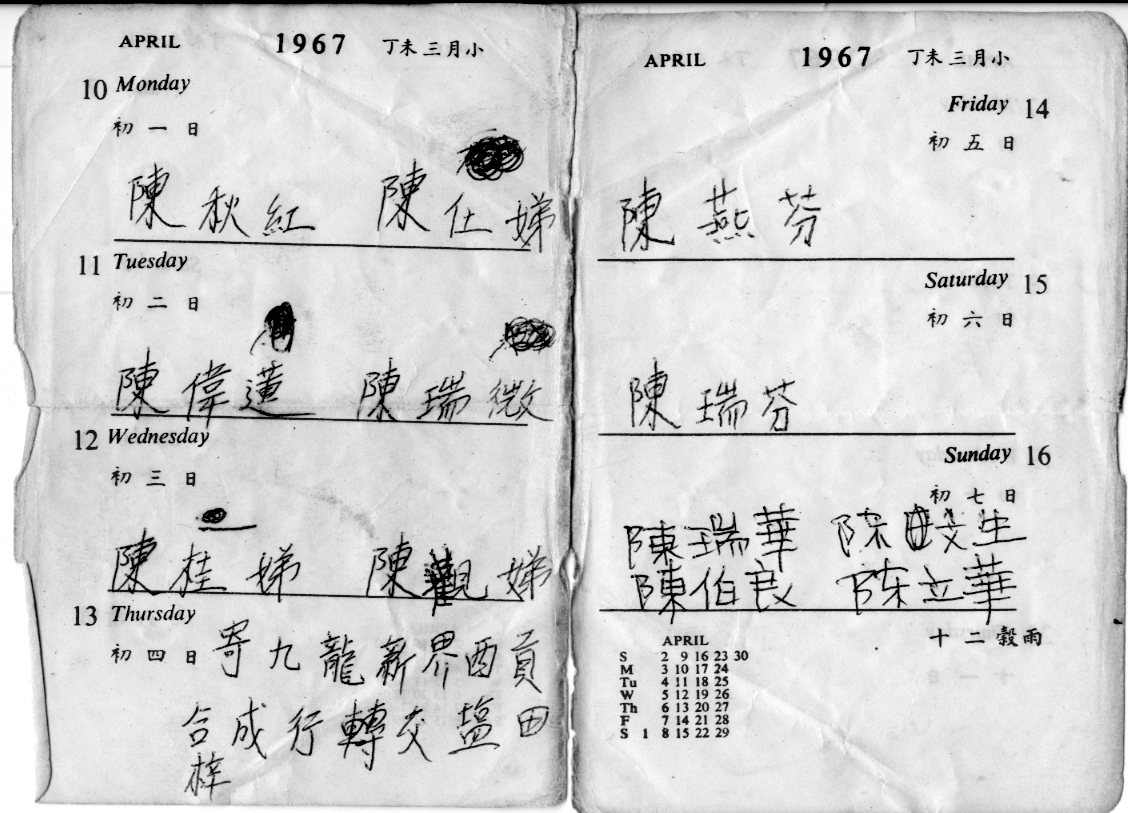 APRIL 1967 丁未三月小
10 Monday
初一日
陳秋紅 陳仕娣
11 Tuesday
初二日
陳偉蓮 陳瑞微
12 Wednesday
初三日
陳桂娣 陳觀娣
13 Thursday
初四日 寄九龍新界西貢
合成行轉交塩田
梓
APRIL 1967 丁未三月小
Friday 14
初五日
陳燕芬
Saturday 15
初六日
陳瑞芬
Sunday 16
初七日
陳瑞華 陈生
陳伯良 陈立華
十二穀雨
APRIL
S 2 9 16 23 30
M 3 10 17 24
Tu 4 11 18 25
W 5 12 19 26
Th 6 13 20 27
F 7 14 21 28
S 1 8 15 22 29